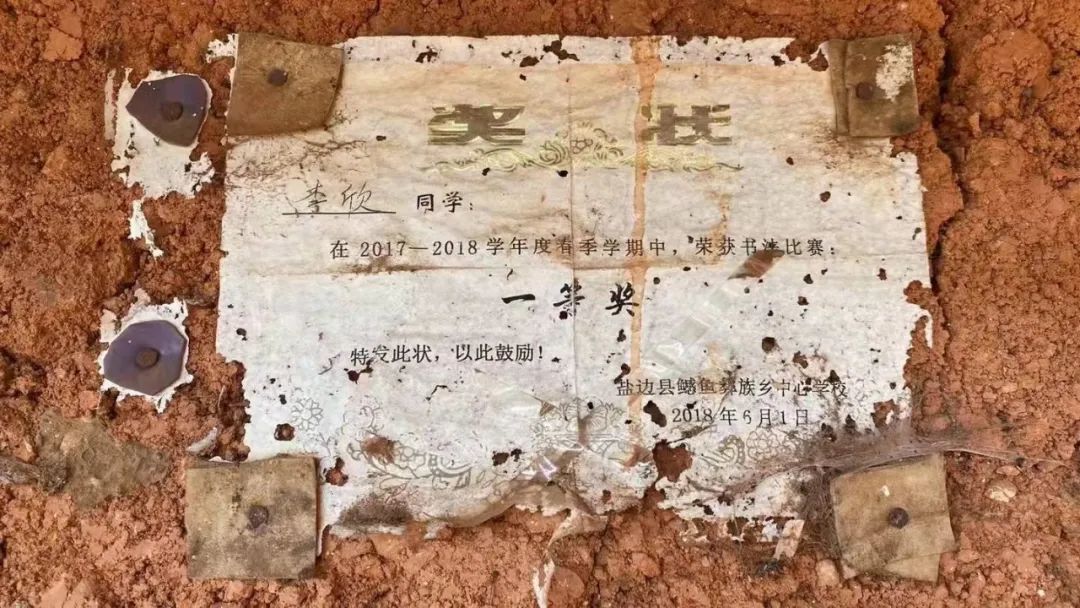 奖状
李欣 同学：
在2017—2018学年度春季学期中，荣获书法比赛：
一等奖
特发此状，以此鼓励！
盐边县鳡鱼彝族乡中心学校
2018年6月1日